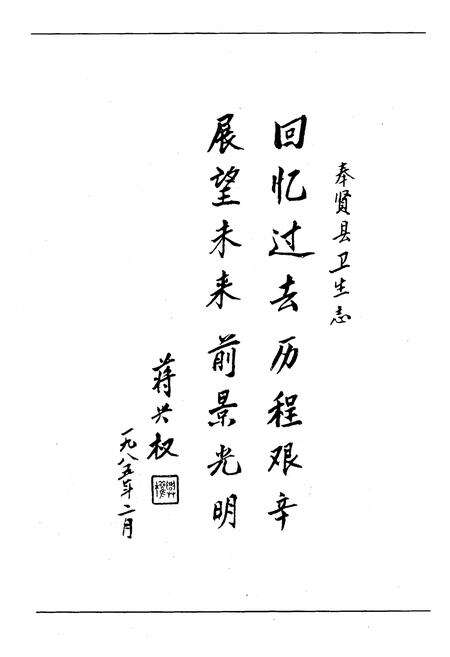 奉贤县卫生志
回忆过去历程艰辛
展望未来前景光明
蒋兴权
一九八五年二月